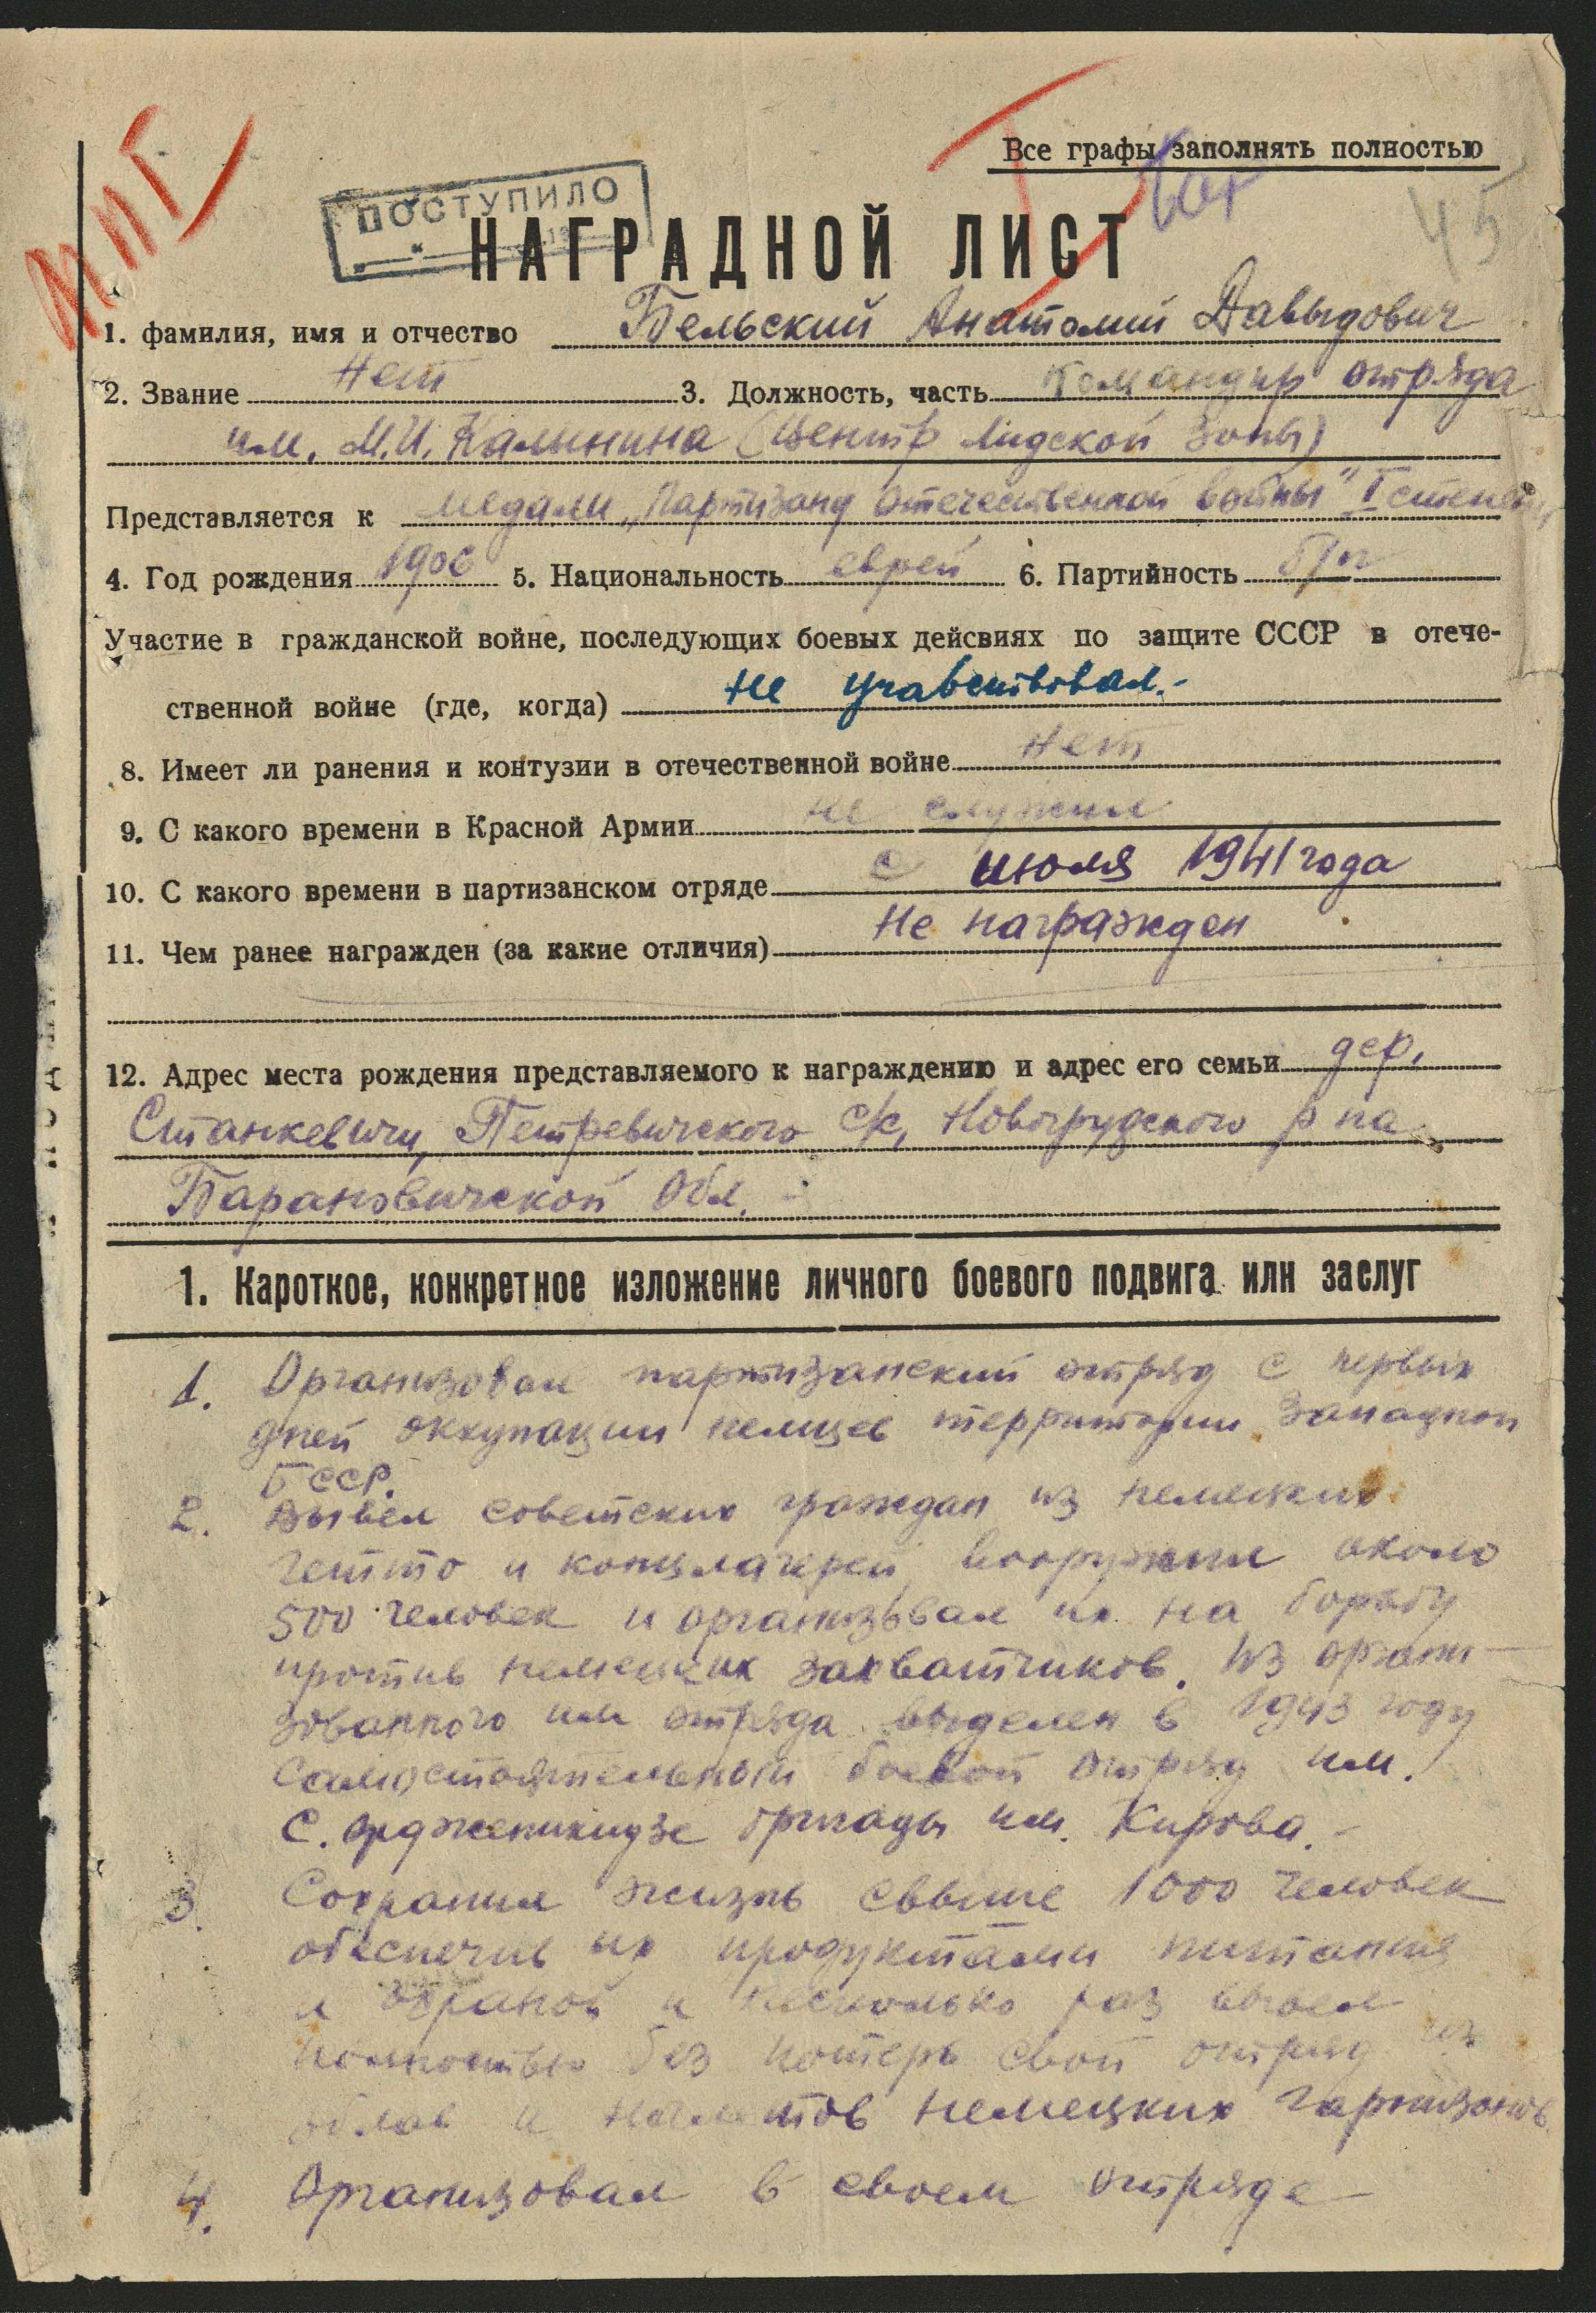 ППГ
Все графы заполнять полностью
45
ПОСТУПИЛО
НАГРАДНОЙ ЛИСТ
1. фамилия, имя и отчество Бельский Анатолий Давыдович
2. Звание Нет 3. Должность, часть Командир отряда
им. М.И. Калинина (Центр Лидской Зоны)
Представляется к медали „Партизану Отечественной войны" I степени
4. Год рождения 1906 5. Национальность еврей 6. Партийность б/п
Участие в гражданской войне, последующих боевых дейсвиях по защите СССР в отече-
ственной войне (где, когда) не учавствовал.-
8. Имеет ли ранения и контузии в отечественной войне нет
9. С какого времени в Красной Армии не служил
10. С какого времени в партизанском отряде с июля 1941 года
11. Чем ранее награжден (за какие отличия) Не награжден
12. Адрес места рождения представляемого к награждению и адрес его семьи дер.
Станкевичи, Петревичского с/с, Новогрудского р-на
Барановичской Обл.
1. Кароткое, конкретное изложение личного боевого подвига илн заслуг
1. Организовал партизанский отряд с первых
дней оккупации немцев территории Западной
БССР.
2. Вывел советских граждан из немецких
гетто и концлагерей, вооружил около
500 человек и организовал их на борьбу
против немецких захватчиков. Из органи-
зованного им отряда выделен в 1943 году
самостоятельный боевой отряд им.
С. Орджоникидзе бригады им. Кирова.-
3. Сохранил жизнь свыше 1000 человек
обеспечив их продуктами питания
и охраной и несколько раз вывел
полностью без потерь свой отряд из
облав и налетов немецких гарнизонов
4. Организовал в своем отряде